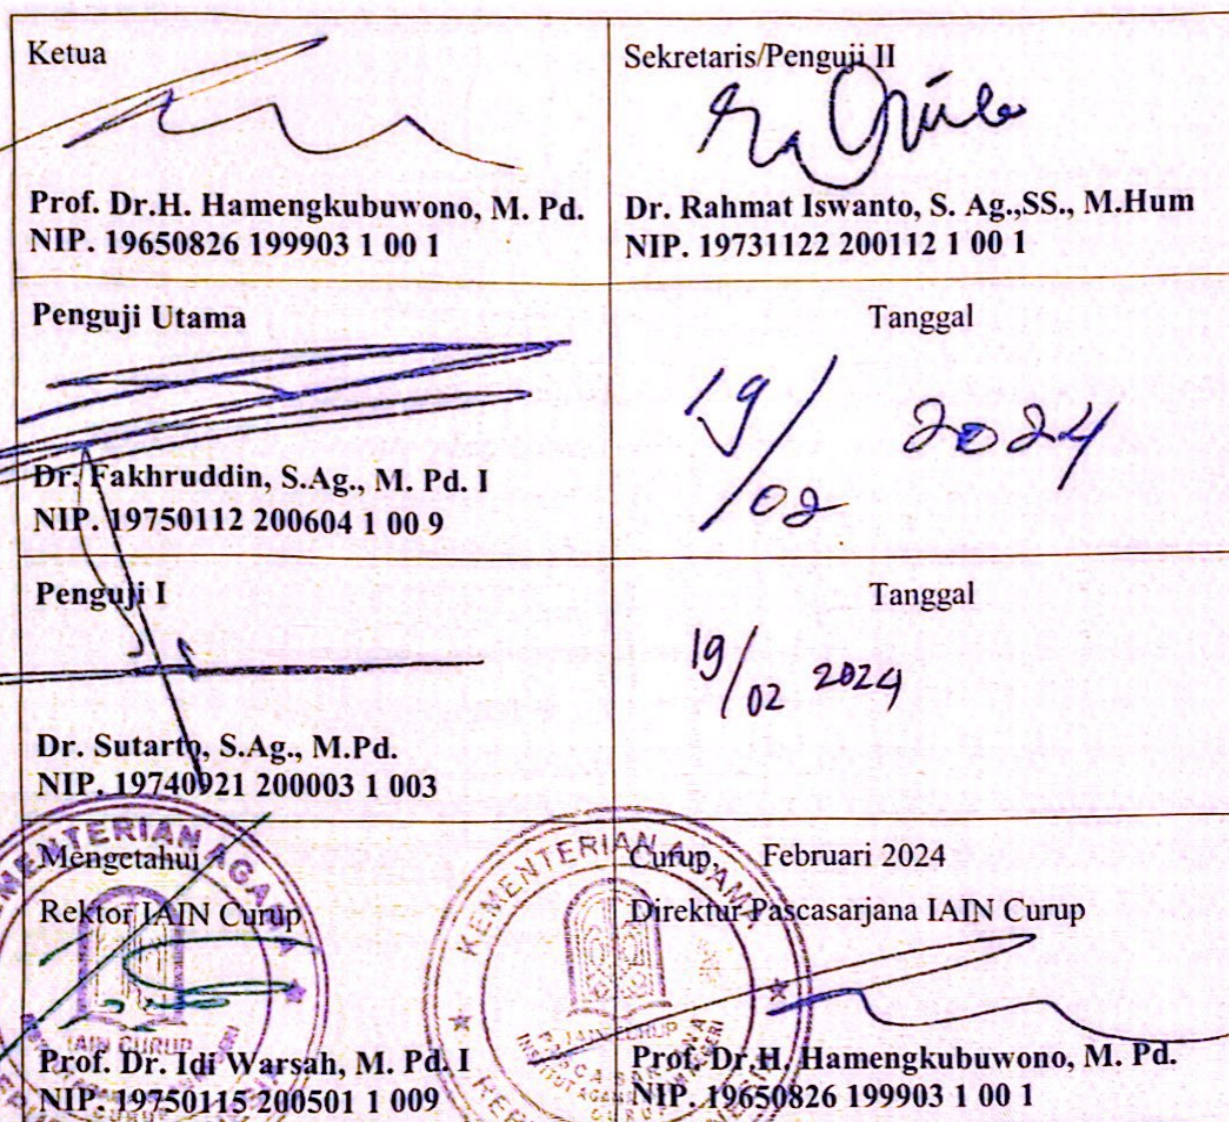 Ketua
Prof. Dr.H. Hamengkubuwono, M. Pd.
NIP. 19650826 199903 1 00 1
Sekretaris/Penguji II
Dr. Rahmat Iswanto, S. Ag.,SS., M.Hum
NIP. 19731122 200112 1 00 1
Penguji Utama
Dr. Fakhruddin, S.Ag., M. Pd. I
NIP. 19750112 200604 1 00 9
Tanggal
19/02 2024
Penguji I
Dr. Sutarto, S.Ag., M.Pd.
NIP. 19740921 200003 1 003
Tanggal
19/02 2024
Mengetahui
Rektor IAIN Curup
Prof. Dr. Idi Warsah, M. Pd. I
NIP. 19750115 200501 1 009
KEMENTERIAN AGAMA
IAIN CURUP
Curup, Februari 2024
Direktur Pascasarjana IAIN Curup
Prof. Dr.H. Hamengkubuwono, M. Pd.
NIP. 19650826 199903 1 00 1
KEMENTERIAN AGAMA
IAIN CURUP